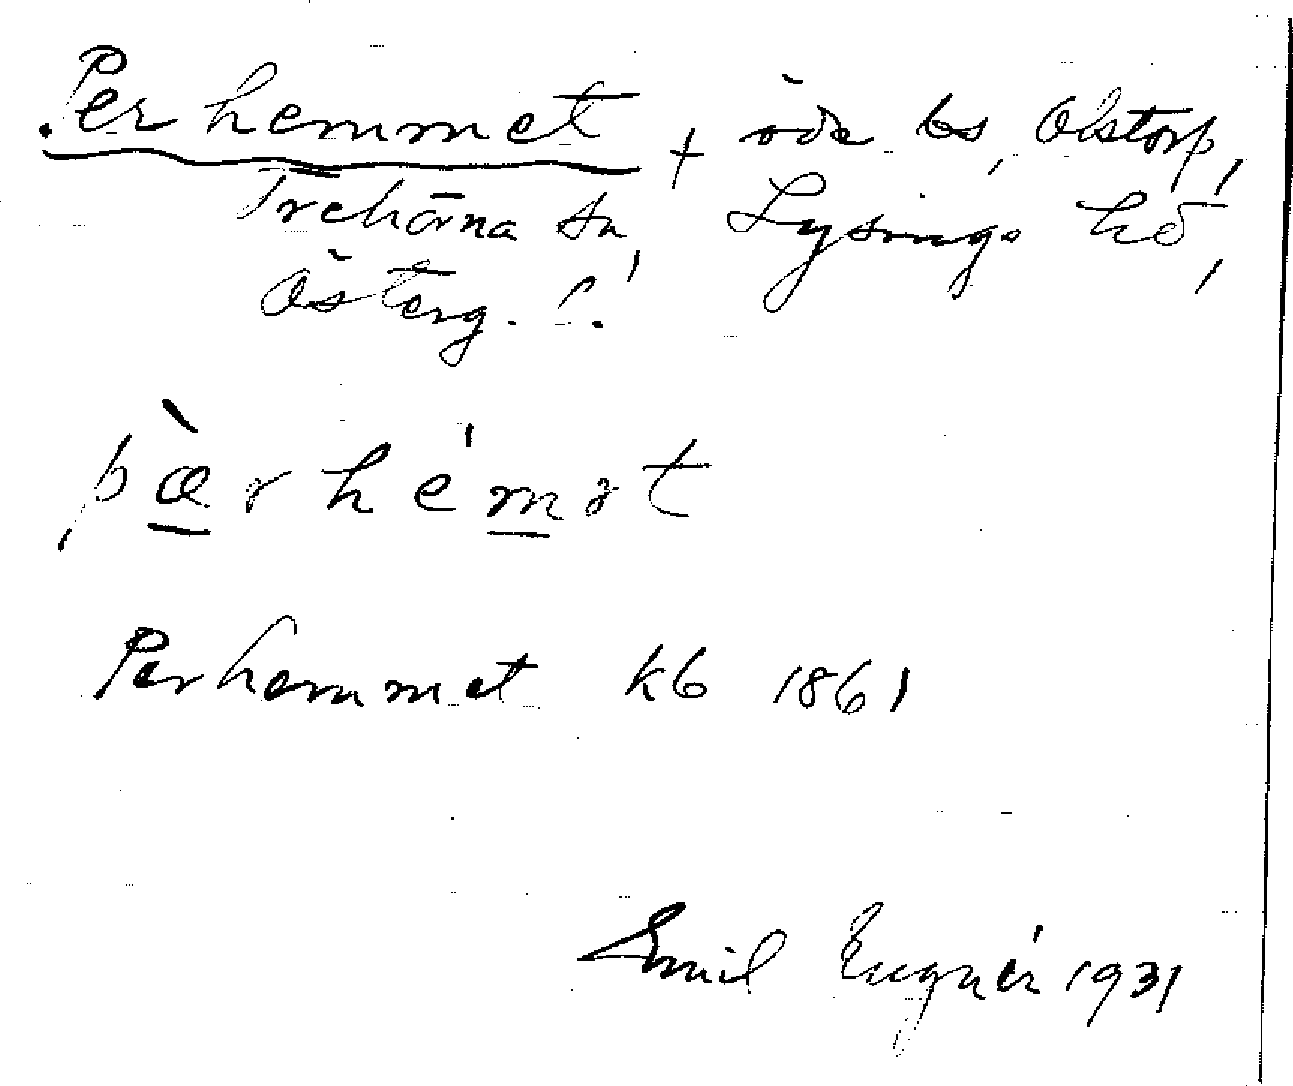 Perhemmet + öde bs, Olstorp,
Trehörna sn, Lysings hd,
Österg. l.
pæ̀rhémət
Perhemmet kb 1861
Emil Eugnér 1931